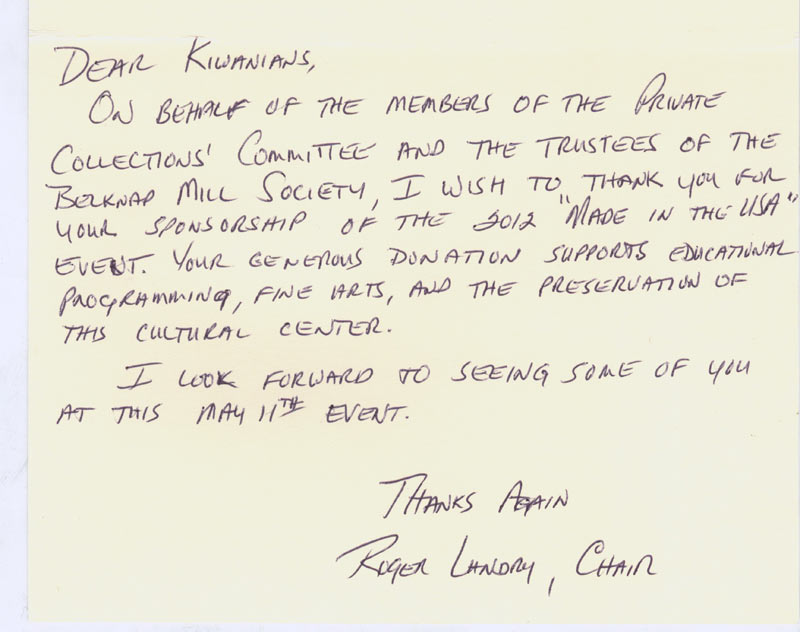 Dear Kiwanians,
On behalf of the members of the Private
Collections' Committee and the Trustees of the
Belknap Mill Society, I wish to thank you for
your sponsorship of the 2012 "Made in the USA"
event. Your generous donation supports educational
programming, fine arts, and the preservation of
this cultural center.
I look forward to seeing some of you
at this May 11th event.
Thanks Again
Roger Landry, Chair